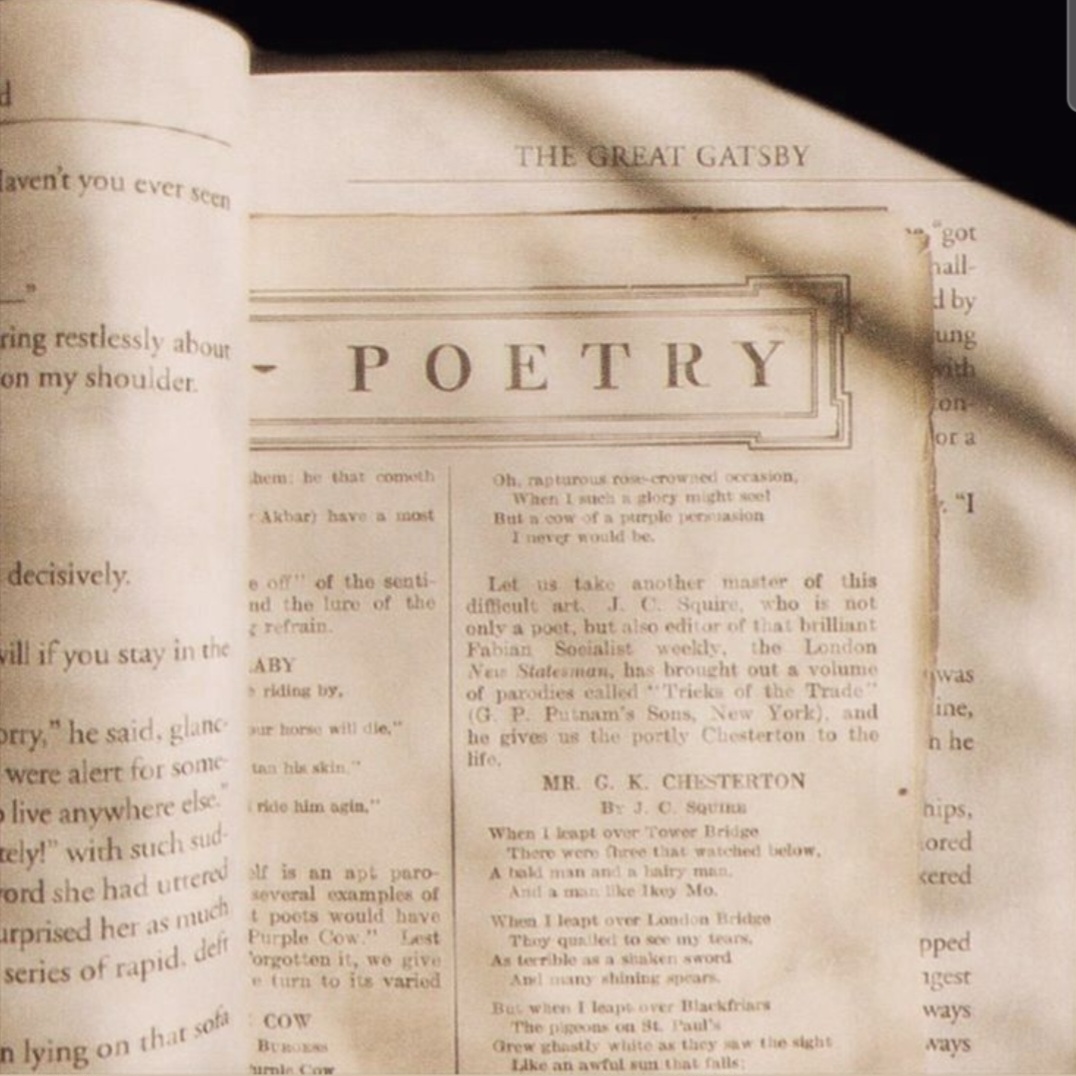 d
Haven't you ever seen
—"
ring restlessly about
on my shoulder.
decisively.
will if you stay in the
orry," he said, glanc-
were alert for some-
live anywhere else."
tely!" with such sud-
ord she had uttered
urprised her as much
series of rapid, deft
n lying on that sofa
THE GREAT GATSBY
- POETRY
hem: he that cometh
Akbar) have a most
e off" of the senti-
nd the lure of the
g refrain.
ABY
riding by,
our horse will die,"
tan his skin."
ride him agin,"
elf is an apt paro-
several examples of
t poets would have
Purple Cow." Lest
forgotten it, we give
e turn to its varied
COW
BURGESS
Purple Cow
Oh, rapturous rose-crowned occasion,
When I such a glory might see!
But a cow of a purple persuasion
I never would be.
Let us take another master of this
difficult art. J. C. Squire, who is not
only a poet, but also editor of that brilliant
Fabian Socialist weekly, the London
New Statesman, has brought out a volume
of parodies called "Tricks of the Trade"
(G. P. Putnam's Sons, New York), and
he gives us the portly Chesterton to the
life.
MR. G. K. CHESTERTON
BY J. C. SQUIRE
When I leapt over Tower Bridge
There were three that watched below,
A bald man and a hairy man,
And a man like Ikey Mo.
When I leapt over London Bridge
They quailed to see my tears,
As terrible as a shaken sword
And many shining spears.
But when I leapt over Blackfriars
The pigeons on St. Paul's
Grew ghastly white as they saw the sight
Like an awful sun that falls;
"got
hall-
d by
ung
with
on-
or a
"I
was
ine,
n he
hips,
ored
kered
pped
ngest
ways
ways